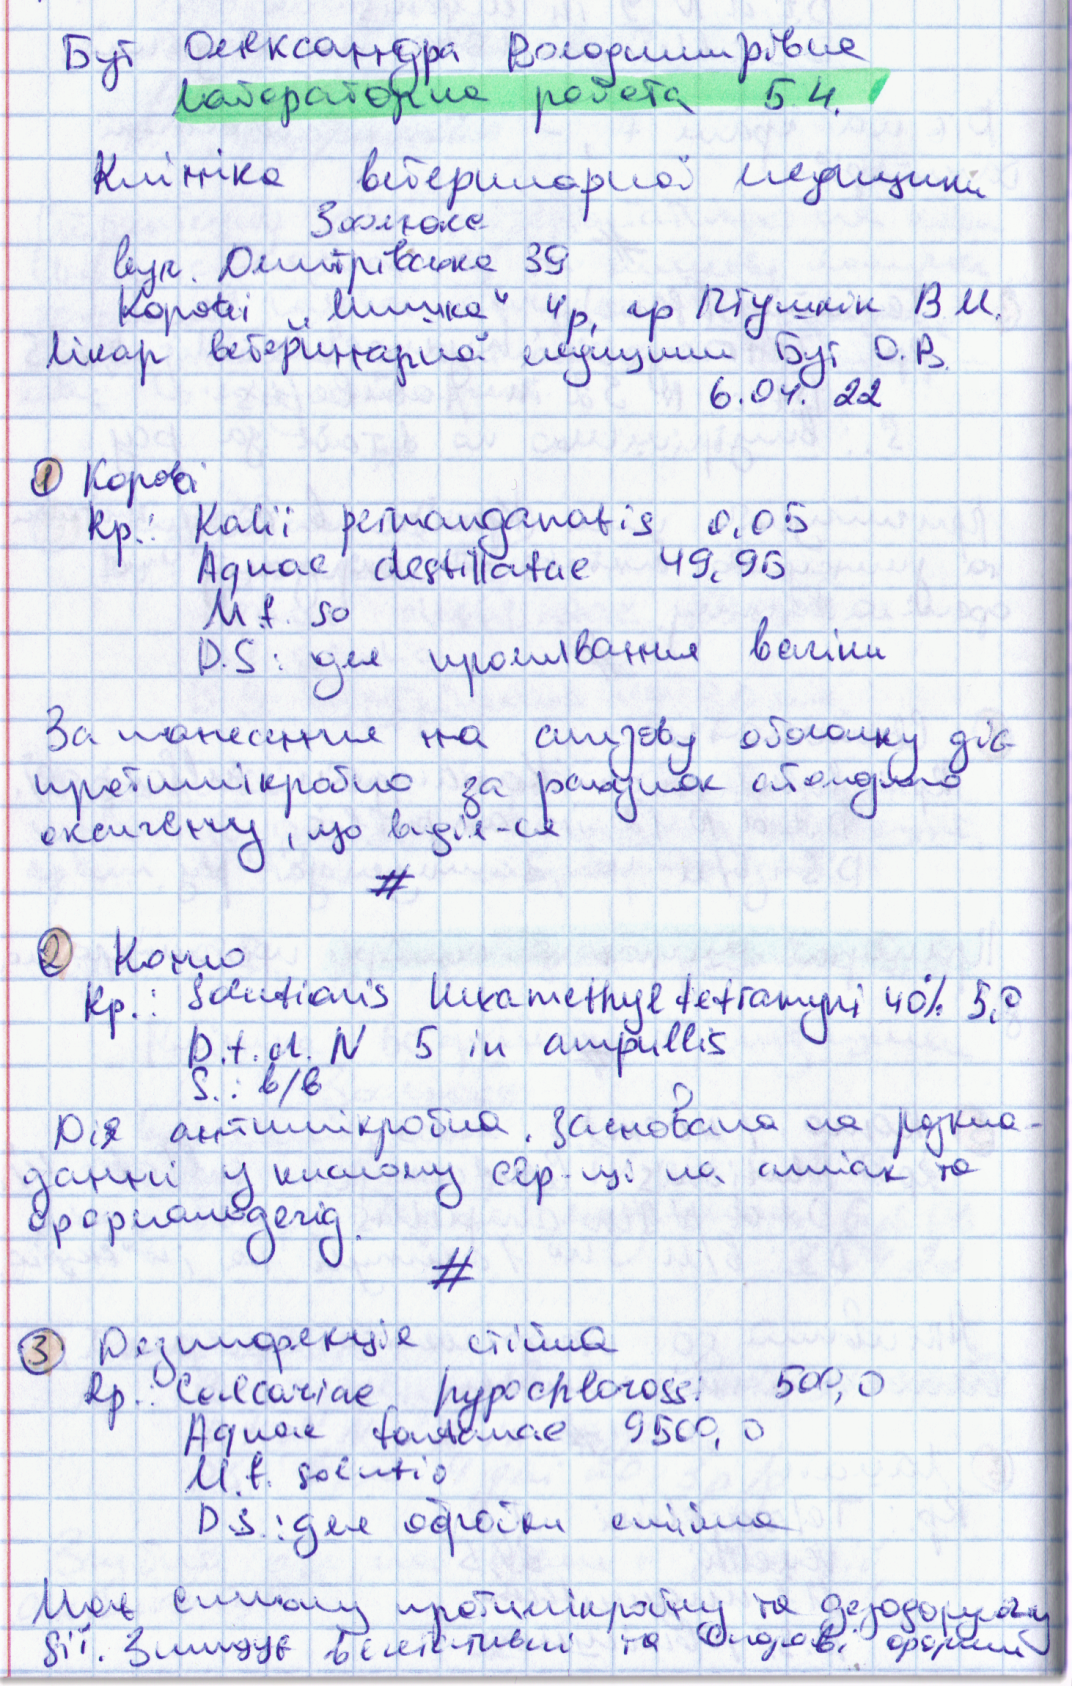 Бут Олександра Володимирівна
Лабораторна робота 5.4.
Клініка ветеринарної медицини
вул. Дмитрівська 39
Корові „Мишка“ 4р, гр Птушкін В.М.
Лікар ветеринарної медицини Бут О.В.
6.04.22
1 Корові
Rp.: Kalii permanganatis 0,05
Aquae destillatae 49,95
M.f. so
D.S: для промивання вагіни
За нанесення на слизову оболонку діє
протимікробно за рахунок атомарного
оксигену, що виділя-ся
#
2 Коню
Rp.: Solutionis Hexamethyltetramyni 40% 5,0
D.t.d. N 5 in ampullis
S.: в/в
Дія антимікробна. Заснована на розкла-
данні у кислому сер-щі на аміак та
формальдегід.
#
3 Дезинфекція стійла
Rp.: Calcariae hypochlorosi 500,0
Aquae fontanae 9500,0
M.f. solutio
D.S.: для обробки стійла
Має сильну протимікробну та дезодоруючу
дії. Знищує вегетативні та спорові форми